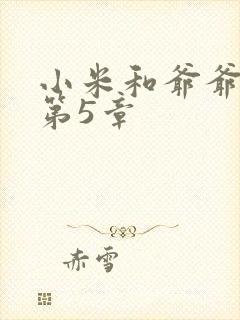 小米和爷爷
第5章
赤雪